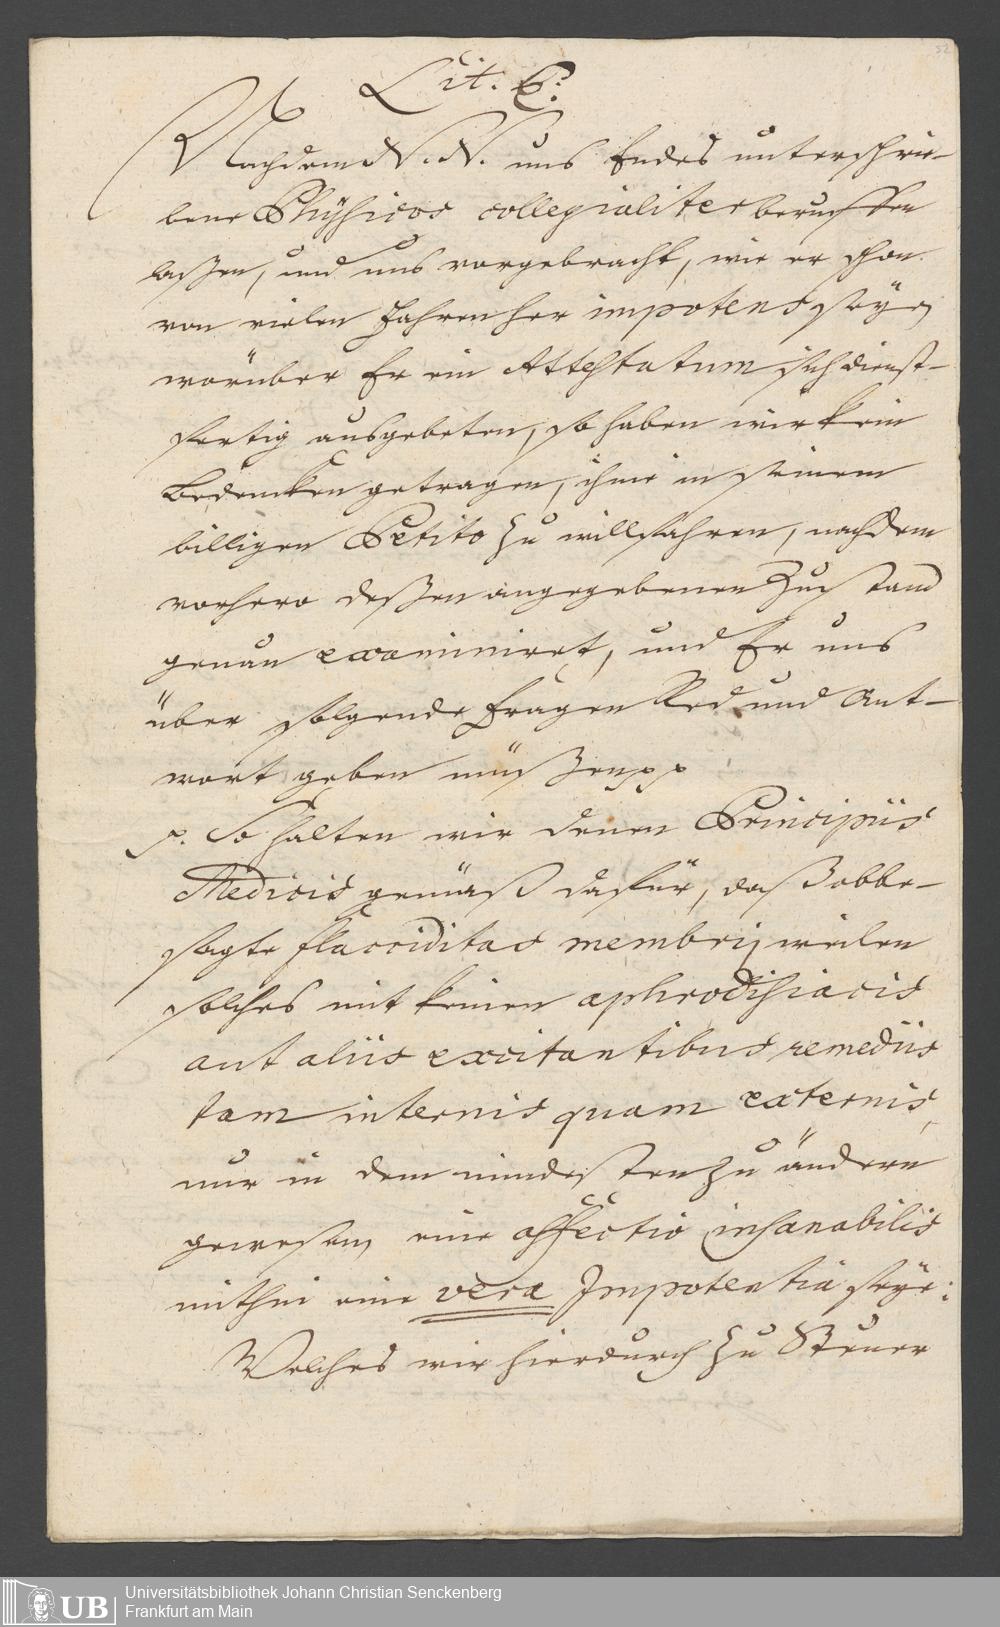 52
Lit. C.
Nachdem N. N. uns Endes unterschrie-
bene Physicos collegialiter beruffen
laßen, und uns vorgebracht, wie er schon
von vielen Jahren her impotens seye,
worüber Er ein Attestatum sich dienst-
fertig ausgebeten, so haben wir kein
Bedencken getragen, ihme in seinem
billigen Petito zu willfahren, nachdem
vorhero deßen angegebenen Zustand
genau examiniret, und Er uns
über folgende Fragen Red und Ant-
wort geben müßen pp
p. So halten wir denen Principiis
Medicis gemäß dafür, daß obbe-
sagte flacciditas membri, weilen
solches mit keinen aphrodisiacis
aut aliis excitantibus remediis
tam internis quam externis,
nur in dem mindesten zu ändern
gewesen, eine affectio insanabilis
mithin eine vera Impotentia seye:
Welches wir hierdurch zu Steuer
UB
Universitätsbibliothek Johann Christian Senckenberg
Frankfurt am Main